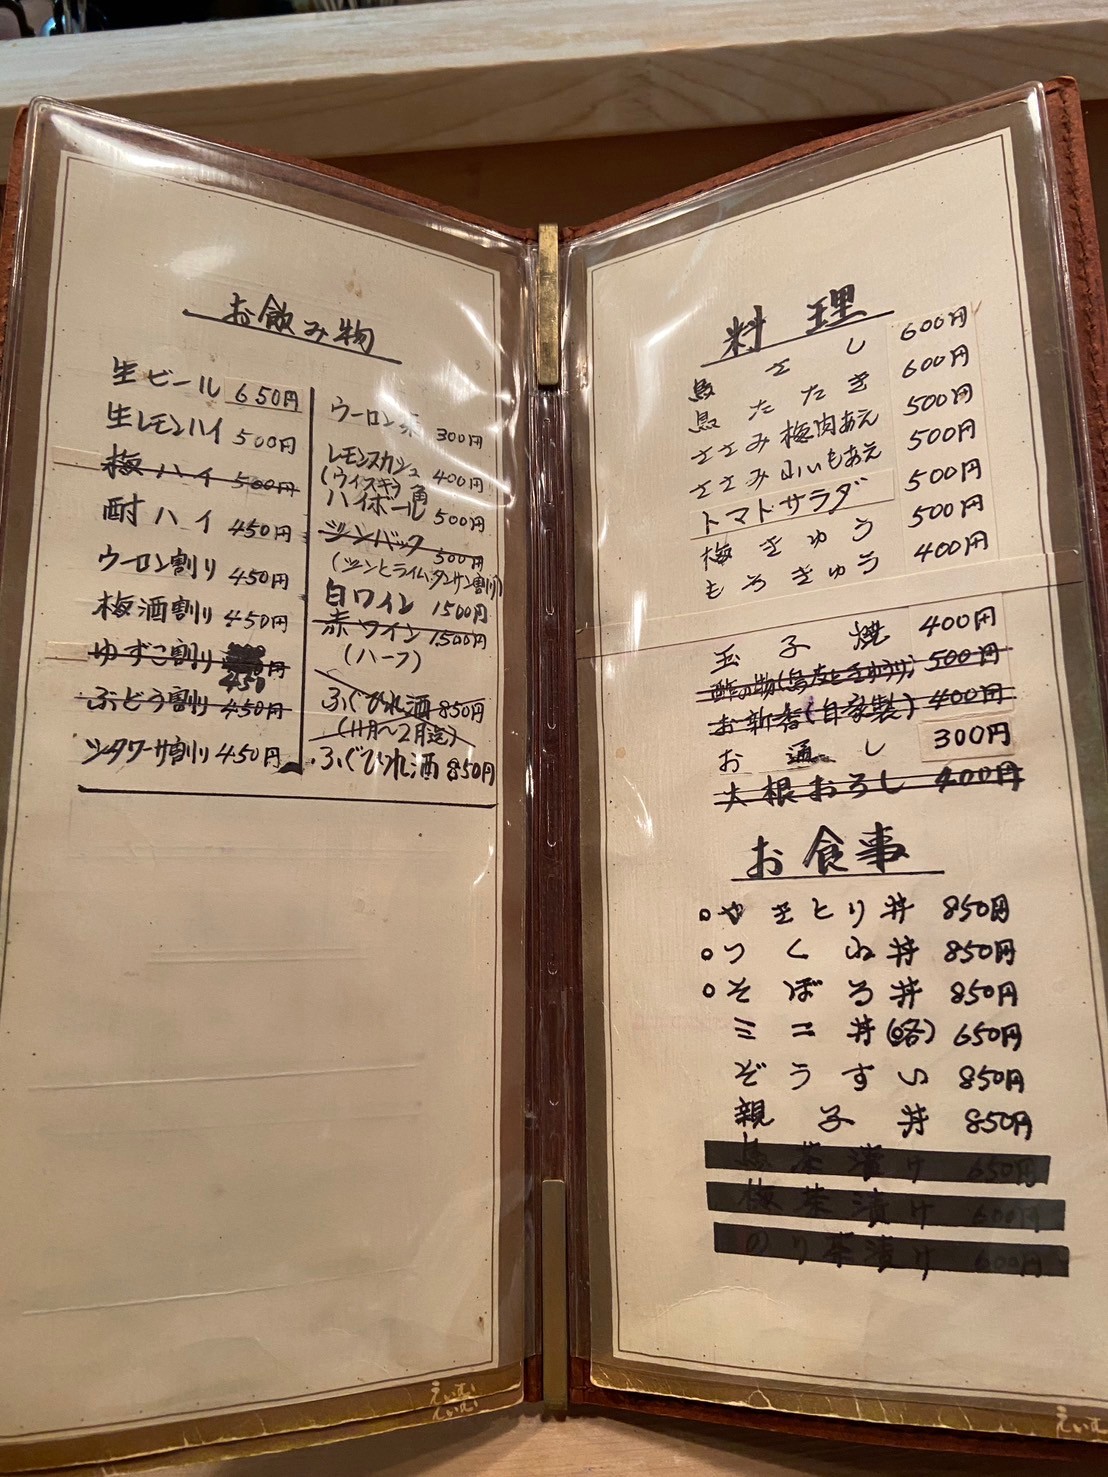 お飲み物
生ビール 650円
生レモンハイ 500円
梅ハイ 500円
酎ハイ 450円
ウーロン割り 450円
梅酒割り 450円
ゆずこ割り 450円
ぶどう割り 450円
シタワーサ割り 450円
ウーロン茶 300円
レモンスカッシュ 400円
(ウイスキー) 角
ハイボール 500円
ジンバック 500円
(ジンとライム、タンサン割り)
白ワイン 1500円
赤ワイン 1,500円
(ハーフ)
ふぐひれ酒 850円
(11月〜2月迄)
・ふぐひれ酒 850円
料理
鳥さし 600円
鳥たたき 600円
ささみ梅肉あえ 500円
ささみ山いもあえ 500円
トマトサラダ 500円
梅きゅう 500円
もろきゅう 400円
玉子焼 400円
酢の物(鳥皮ときゅうり) 500円
お新香(自家製) 400円
お通し 300円
大根おろし 400円
お食事
○やきとり丼 850円
○つくね丼 850円
○そぼろ丼 850円
ミニ丼(各) 650円
ぞうすい 850円
親子丼 850円
鳥茶漬け 650円
梅茶漬け 600円
のり茶漬け 600円
えいむ
えいむ
えいむ